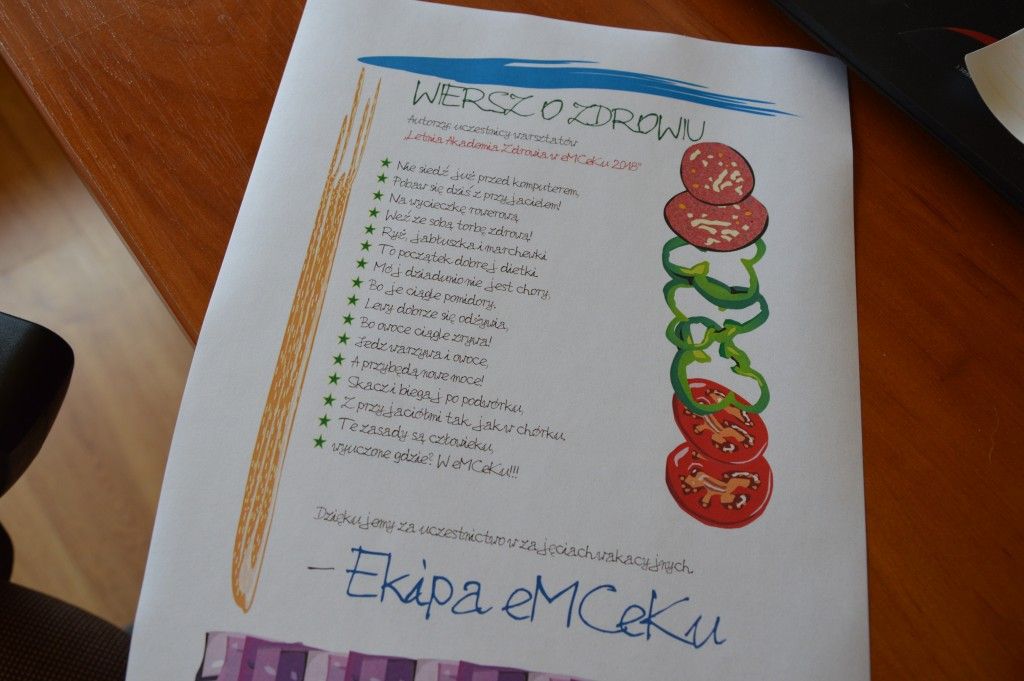 WIERSZ O ZDROWIU
Autorzy: uczestnicy warsztatów
„Letnia Akademia Zdrowia w eMCeKu 2018"
Nie siedź już przed komputerem,
Pobaw się dziś z przyjacielem!
Na wycieczkę rowerową
Weź ze sobą torbę zdrową!
Ryż, jabłuszka i marchewki
To początek dobrej dietki
Mój dziadunio nie jest chory,
Bo je ciągle pomidory.
Lewy dobrze się odżywia,
Bo owoce ciągle zrywa!
Jedz warzywa i owoce,
A przybędą nowe moce!
Skacz i biegaj po podwórku,
Z przyjaciółmi tak jak w chórku.
Te zasady są człowieku,
wyuczone gdzie? W eMCeKu!!!
Dziękujemy za uczestnictwo w zajęciach wakacyjnych
– Ekipa eMCeKu